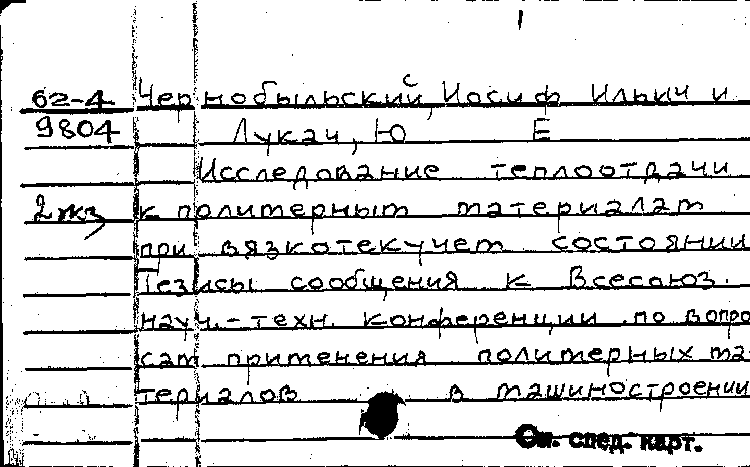 62-4 Чернобыльский, Иосиф Ильич и
9804 Лукач, Ю Е
Исследование теплоотдачи
2 экз к полимерным материалам
при вязкотекучем состоянии
Тезисы сообщения к Всесоюз.
науч.-техн. конференции по вопро
сам применения полимерных ма
териалов в машиностроении
См. след. карт.